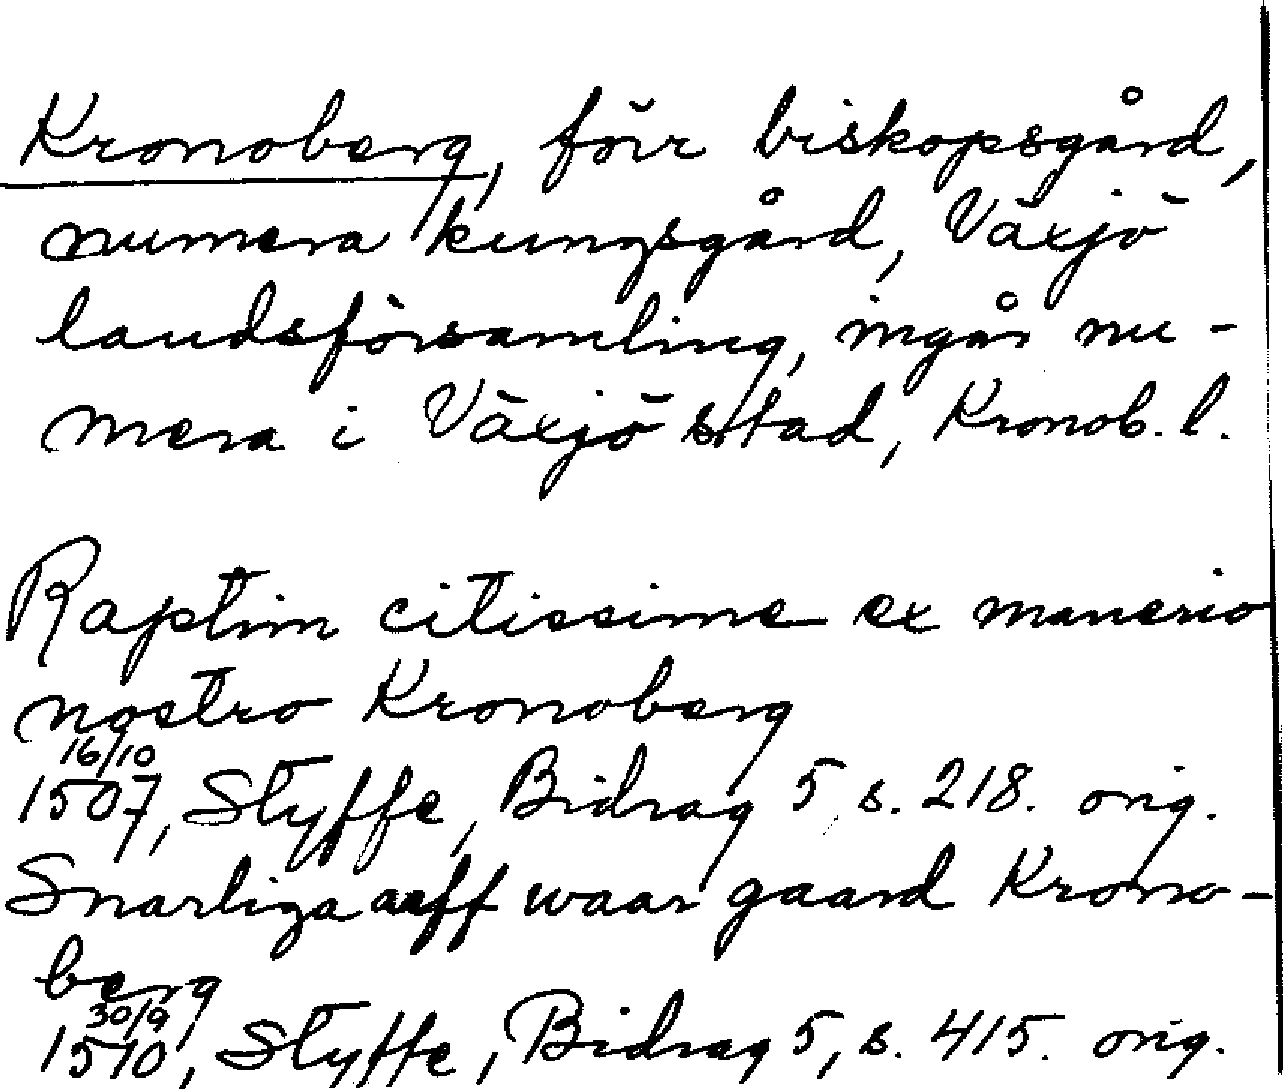 Kronoberg, förr biskopsgård,
numera kungsgård, Växjö
landsförsamling, ingår nu-
mera i Växjö stad, Kronob. l.
Raptim citissime ex manerio
nostro Kronoberg
16/10
1507, Styffe, Bidrag 5, s. 218. orig.
Snarliga aaff waar gaard Krono-
berg
30/9
1510, Styffe, Bidrag 5, s. 415. orig.